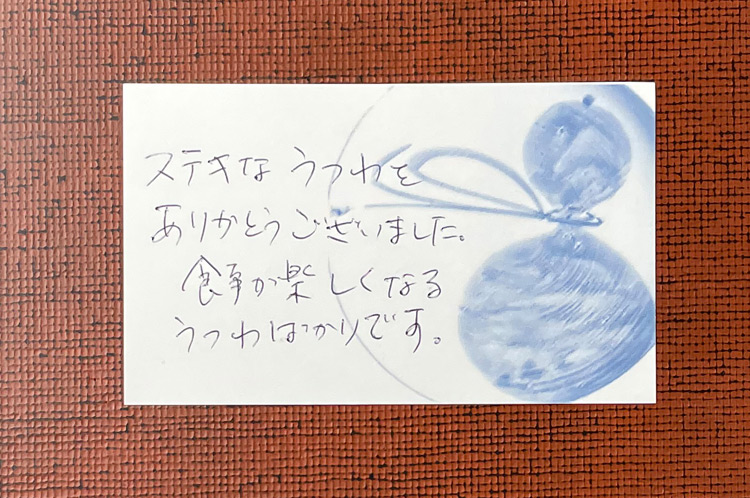 ステキな うつわを
ありがとうございました。
食事が楽しくなる
うつわばかりです。